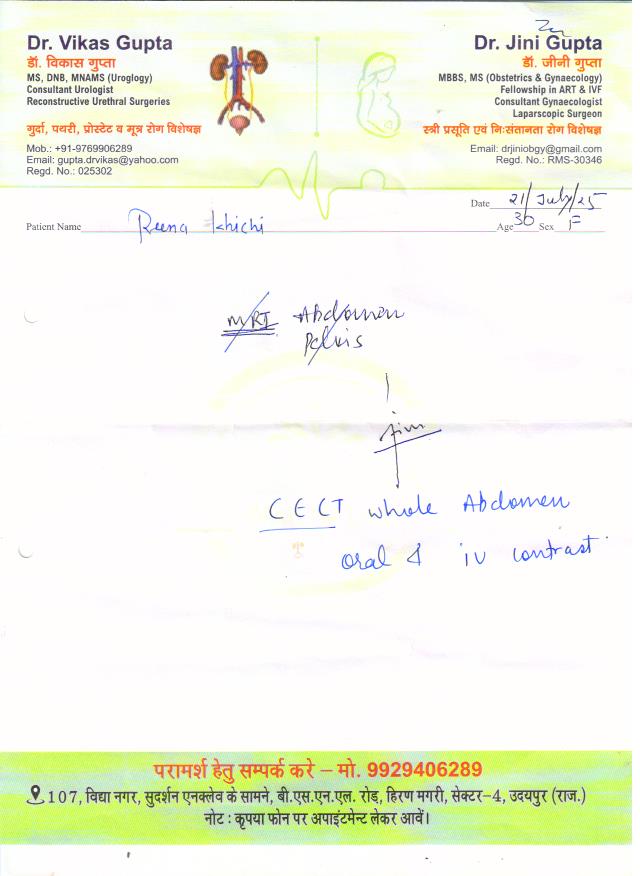 Dr. Vikas Gupta
डॉ. विकास गुप्ता
MS, DNB, MNAMS (Uroglogy)
Consultant Urologist
Reconstructive Urethral Surgeries
गुर्दा, पथरी, प्रोस्टेट व मूत्र रोग विशेषज्ञ
Mob.: +91-9769906289
Email: gupta.drvikas@yahoo.com
Regd. No.: 025302
Dr. Jini Gupta
डॉ. जीनी गुप्ता
MBBS, MS (Obstetrics & Gynaecology)
Fellowship in ART & IVF
Consultant Gynaecologist
Laparscopic Surgeon
स्त्री प्रसूति एवं निःसंतानता रोग विशेषज्ञ
Email: drjiniobgy@gmail.com
Regd. No.: RMS-30346
Date 21/July/25
Patient Name Reena Khichi Age 30 Sex F
MRI Abdomen
Pelvis
CECT whole Abdomen
oral & iv contrast
परामर्श हेतु सम्पर्क करे – मो. 9929406289
107, विद्या नगर, सुदर्शन एनक्लेव के सामने, बी.एस.एन.एल. रोड़, हिरण मगरी, सेक्टर-4, उदयपुर (राज.)
नोट : कृपया फोन पर अपाइंटमेन्ट लेकर आवें।